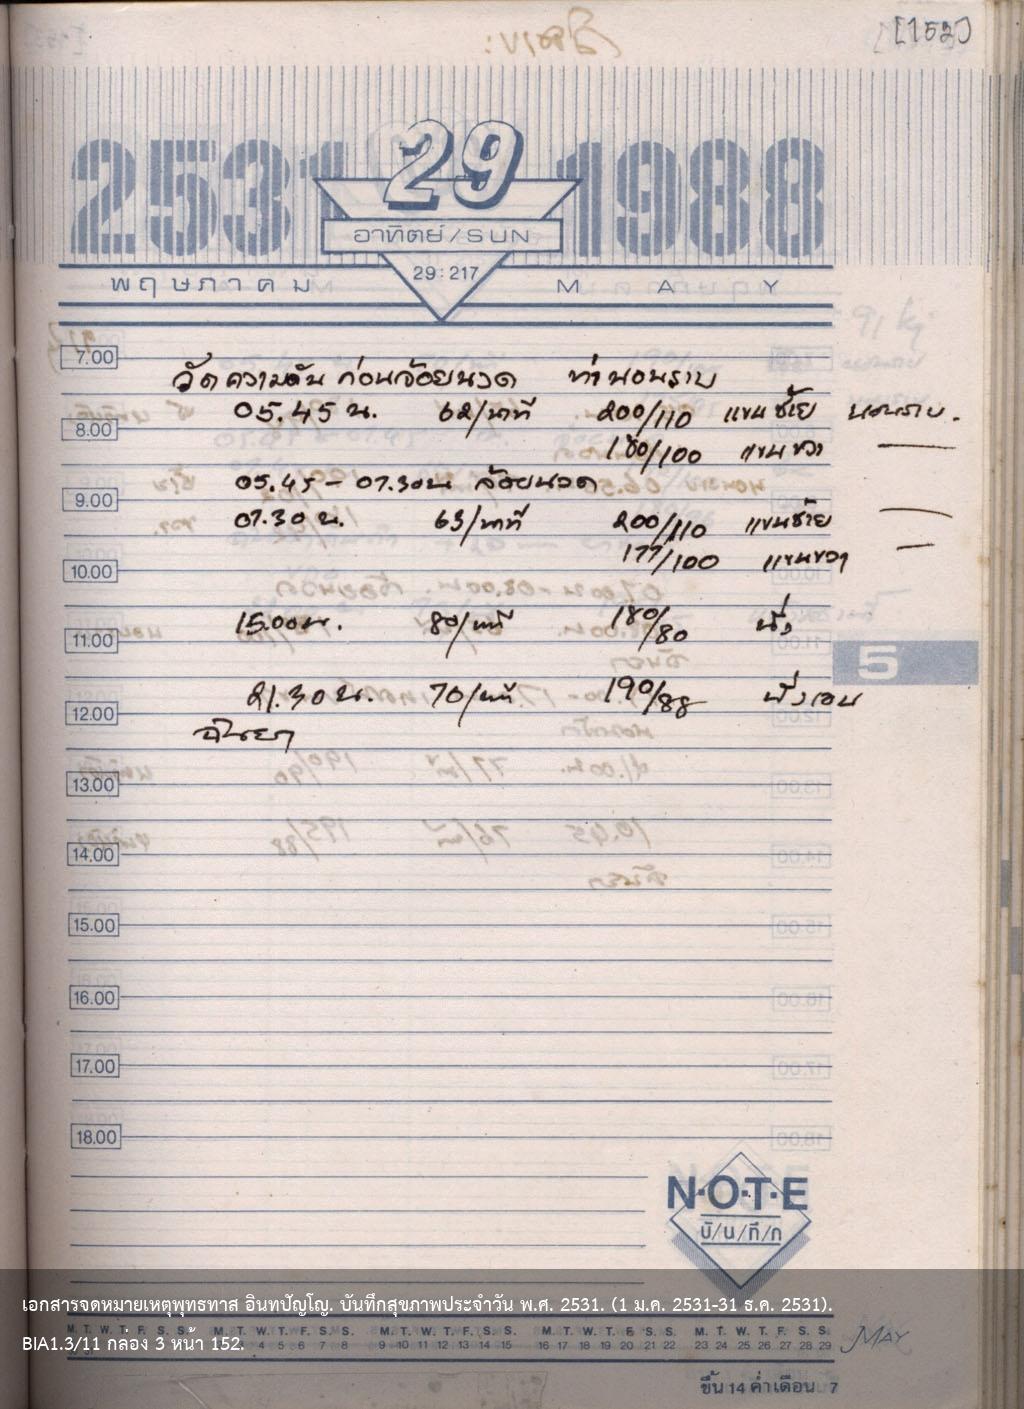 [152]
2531 29 1988
อาทิตย์/SUN
29:217
พฤษภาคม MAY
7.00
วัดความดัน ก่อนจ้อยนวด ท่านอนราบ
05.45 น. 62/นาที 200/110 แขนซ้าย นอนราบ.
8.00
180/100 แขนขวา —
05.45 – 07.30 น จ้อยนวด
9.00
07.30 น. 63/นาที 200/110 แขนซ้าย —
177/100 แขนขวา —
10.00
15.00 น. 80/นาที 180/80 นั่ง
11.00
5
21.30 น. 70/นาที 190/88 นั่งเอน
12.00
ฉันยา
13.00
14.00
15.00
16.00
17.00
18.00
N·O·T·E
บั/น/ทึ/ก
เอกสารจดหมายเหตุพุทธทาส อินทปัญโญ. บันทึกสุขภาพประจำวัน พ.ศ. 2531. (1 ม.ค. 2531-31 ธ.ค. 2531).
M. T. W. T. F. S. S. M. T. W. T. F. S. S. M. T. W. T. F. S. S. M. T. W. T. F. S. S. M. T. W. T. F. S. S.
BIA1.3/11 กล่อง 3 หน้า 152. 3 4 5 6 7 8 9 10 11 12 13 14 15 16 17 18 19 20 21 22 23 24 25 26 27 28 29 MAY
ขึ้น 14 ค่ำ เดือน 7